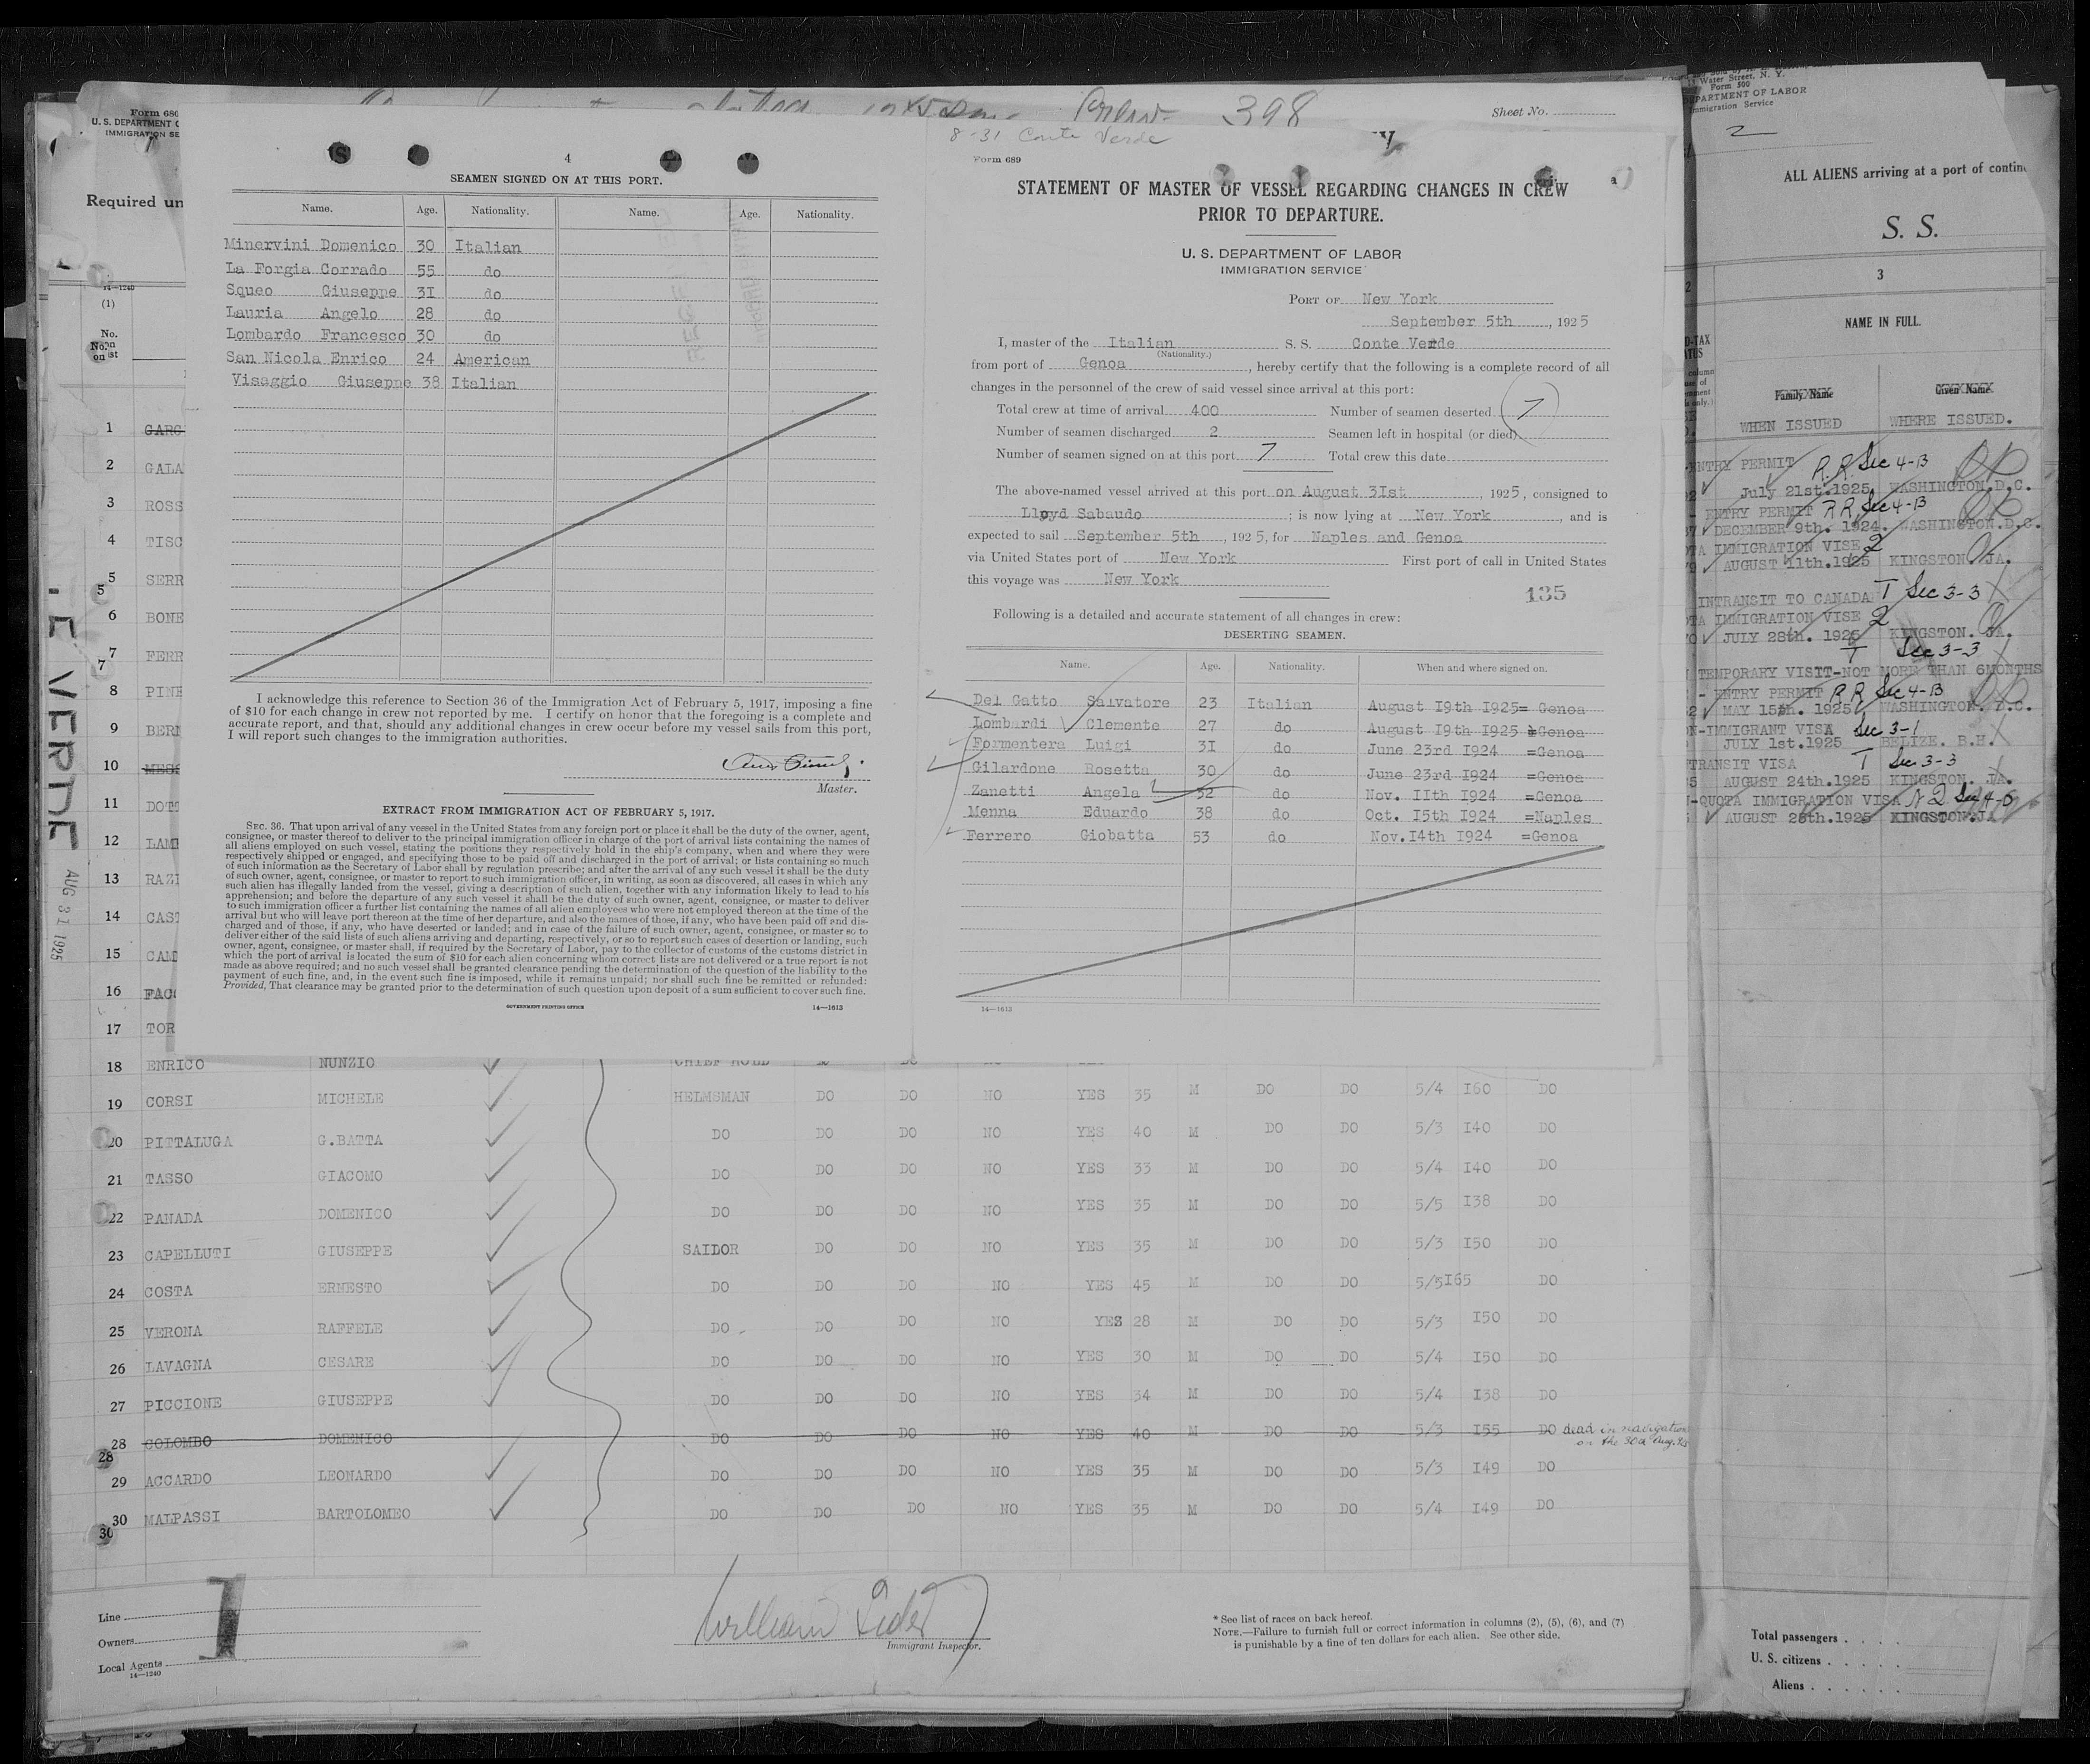 398
Sheet No.
Form 686
U. S. DEPARTMENT O
IMMIGRATION SE
Required un
4
SEAMEN SIGNED ON AT THIS PORT.
Name. Age. Nationality. Name. Age. Nationality.
Minervini Domenico 30 Italian
La Forgia Corrado 55 do
Squeo Giuseppe 31 do
Lauria Angelo 28 do
Lombardo Francesco 30 do
San Nicola Enrico 24 American
Visaggio Giuseppe 38 Italian
I acknowledge this reference to Section 36 of the Immigration Act of February 5, 1917, imposing a fine
of $10 for each change in crew not reported by me. I certify on honor that the foregoing is a complete and
accurate report, and that, should any additional changes in crew occur before my vessel sails from this port,
I will report such changes to the immigration authorities.
Master.
EXTRACT FROM IMMIGRATION ACT OF FEBRUARY 5, 1917.
SEC. 36. That upon arrival of any vessel in the United States from any foreign port or place it shall be the duty of the owner, agent,
consignee, or master thereof to deliver to the principal immigration officer in charge of the port of arrival lists containing the names of
all aliens employed on such vessel, stating the positions they respectively hold in the ship's company, when and where they were
respectively shipped or engaged, and specifying those to be paid off and discharged in the port of arrival; or lists containing so much
of such information as the Secretary of Labor shall by regulation prescribe; and after the arrival of any such vessel it shall be the duty
of such owner, agent, consignee, or master to report to such immigration officer, in writing, as soon as discovered, all cases in which any
such alien has illegally landed from the vessel, giving a description of such alien, together with any information likely to lead to his
apprehension; and before the departure of any such vessel it shall be the duty of such owner, agent, consignee, or master to deliver
to such immigration officer a further list containing the names of all alien employees who were not employed thereon at the time of the
arrival but who will leave port thereon at the time of her departure, and also the names of those, if any, who have been paid off and dis-
charged and of those, if any, who have deserted or landed; and in case of the failure of such owner, agent, consignee, or master so to
deliver either of the said lists of such aliens arriving and departing, respectively, or so to report such cases of desertion or landing, such
owner, agent, consignee, or master shall, if required by the Secretary of Labor, pay to the collector of customs of the customs district in
which the port of arrival is located the sum of $10 for each alien concerning whom correct lists are not delivered or a true report is not
made as above required; and no such vessel shall be granted clearance pending the determination of the question of the liability to the
payment of such fine, and, in the event such fine is imposed, while it remains unpaid; nor shall such fine be remitted or refunded:
Provided, That clearance may be granted prior to the determination of such question upon deposit of a sum sufficient to cover such fine.
GOVERNMENT PRINTING OFFICE 14—1613
8-31 Conte Verde
Form 689
STATEMENT OF MASTER OF VESSEL REGARDING CHANGES IN CREW
PRIOR TO DEPARTURE.
U. S. DEPARTMENT OF LABOR
IMMIGRATION SERVICE
PORT OF New York
September 5th, 1925
I, master of the Italian S. S. Conte Verde
(Nationality.)
from port of Genoa, hereby certify that the following is a complete record of all
changes in the personnel of the crew of said vessel since arrival at this port:
Total crew at time of arrival 400 Number of seamen deserted 7
Number of seamen discharged 2 Seamen left in hospital (or died)
Number of seamen signed on at this port 7 Total crew this date
The above-named vessel arrived at this port on August 31st, 1925, consigned to
Lloyd Sabaudo; is now lying at New York, and is
expected to sail September 5th, 1925, for Naples and Genoa
via United States port of New York First port of call in United States
this voyage was New York
135
Following is a detailed and accurate statement of all changes in crew:
DESERTING SEAMEN.
Name. Age. Nationality. When and where signed on.
Del Gatto Salvatore 23 Italian August I9th I925= Genoa
Lombardi Clemente 27 do August I9th I925 =Genoa
Formentera Luigi 31 do June 23rd I924 =Genoa
Gilardone Rosetta 30 do June 23rd I924 =Genoa
Zanetti Angela 32 do Nov. IIth I924 =Genoa
Menna Eduardo 38 do Oct. I5th I924 =Naples
Ferrero Giobatta 53 do Nov.I4th I924 =Genoa
14—1613
14—1240
(1)
No.
on
1 GARG
2 GALA
3 ROSS
4 TISC
5 SERR
6 BONE
7 FERR
8 PINE
9 BERN
10 MESS
11 DOTT
12 LAMB
13 RAZI
14 CAST
15 CAMB
16 FACC
17 TOR
E VERDE
AUG 31 1925
18 ENRICO NUNZIO
19 CORSI MICHELE HELMSMAN DO DO NO YES 35 M DO DO 5/4 I60 DO
20 PITTALUGA G.BATTA DO DO DO NO YES 40 M DO DO 5/3 I40 DO
21 TASSO GIACOMO DO DO DO NO YES 33 M DO DO 5/4 I40 DO
22 PANADA DOMENICO DO DO DO NO YES 35 M DO DO 5/5 I38 DO
23 CAPELLUTI GIUSEPPE SAILOR DO DO NO YES 35 M DO DO 5/3 I50 DO
24 COSTA ERNESTO DO DO DO NO YES 45 M DO DO 5/5I65 DO
25 VERONA RAFFELE DO DO DO NO YES 28 M DO DO 5/3 I50 DO
26 LAVAGNA CESARE DO DO DO NO YES 30 M DO DO 5/4 I50 DO
27 PICCIONE GIUSEPPE DO DO DO NO YES 34 M DO DO 5/4 I38 DO
28 COLOMBO DOMENICO DO DO DO NO YES 40 M DO DO 5/3 I55 DO dead in navigation
on the 30th Aug.
29 ACCARDO LEONARDO DO DO DO NO YES 35 M DO DO 5/3 I49 DO
30 MALPASSI BARTOLOMEO DO DO DO NO YES 35 M DO DO 5/4 I49 DO
Line
Owners
Local Agents
14—1240
1
William
Immigrant Inspector.
* See list of races on back hereof.
NOTE.—Failure to furnish full or correct information in columns (2), (5), (6), and (7)
is punishable by a fine of ten dollars for each alien. See other side.
Water Street, N. Y.
Form 500
DEPARTMENT OF LABOR
Immigration Service
2
ALL ALIENS arriving at a port of contin
S. S.
3
NAME IN FULL.
Family Name Given Name
WHEN ISSUED WHERE ISSUED.
ENTRY PERMIT R.R Sec 4-B
July 21st.1925 WASHINGTON.D.C.
ENTRY PERMIT R R Sec 4-B
DECEMBER 9th. 1924. WASHINGTON.D.C.
IMMIGRATION VISE 2
AUGUST 11th.1925 KINGSTON JA.
INTRANSIT TO CANADA T Sec 3-3
IMMIGRATION VISE 2
JULY 28th. 1925 KINGSTON. JA.
T Sec 3-3
TEMPORARY VISIT-NOT MORE THAN 6MONTHS
- ENTRY PERMIT R R Sec 4-B
MAY 15th. 1925 WASHINGTON. D.C.
N-IMMIGRANT VISA Sec 3-1
JULY 1st.1925 BELIZE. B.H.
TRANSIT VISA T Sec 3-3
AUGUST 24th.1925 KINGSTON. JA.
-QUOTA IMMIGRATION VISA
AUGUST 28th.1925 KINGSTON.JA
Total passengers
U. S. citizens
Aliens